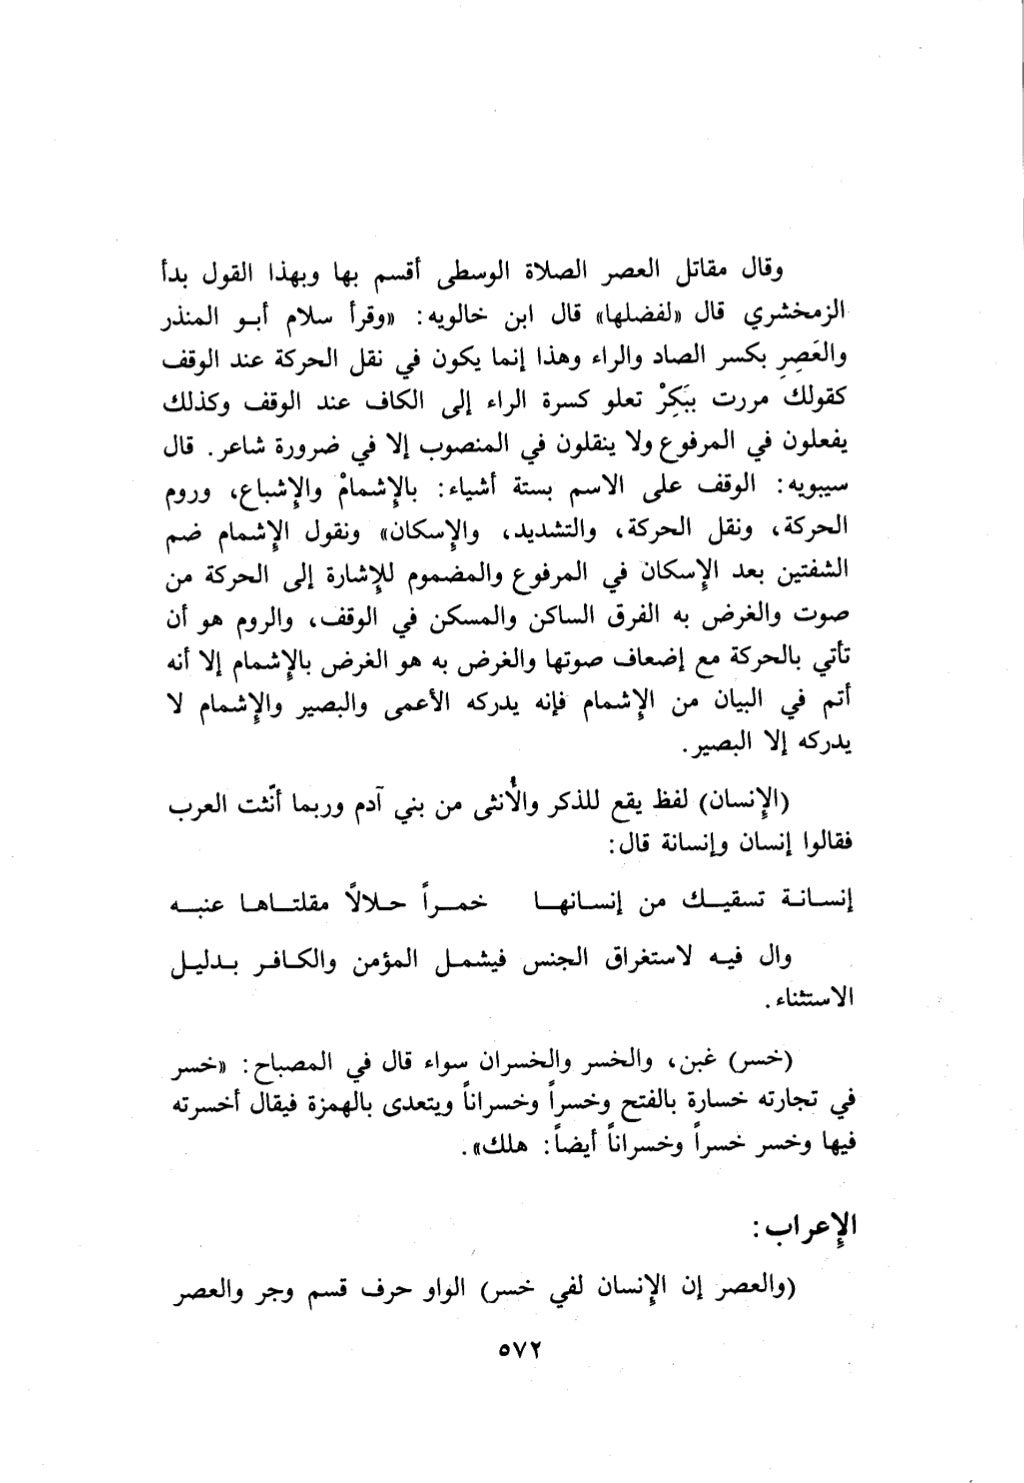 وقال مقاتل العصر الصلاة الوسطى أقسم بها وبهذا القول بدأ
الزمخشري قال «لفضلها» قال ابن خالويه: «وقرأ سلام أبو المنذر
والعَصِرِ بكسر الصاد والراء وهذا إنما يكون في نقل الحركة عند الوقف
كقولك مررت ببَكِرْ تعلو كسرة الراء إلى الكاف عند الوقف وكذلك
يفعلون في المرفوع ولا ينقلون في المنصوب إلا في ضرورة شاعر. قال
سيبويه: الوقف على الاسم بستة أشياء: بالإِشمامْ والإِشباع، وروم
الحركة، ونقل الحركة، والتشديد، والإِسكان» ونقول الإِشمام ضم
الشفتين بعد الإِسكان في المرفوع والمضموم للإِشارة إلى الحركة من
صوت والغرض به الفرق الساكن والمسكن في الوقف، والروم هو أن
تأتي بالحركة مع إضعاف صوتها والغرض به هو الغرض بالإِشمام إلا أنه
أتم في البيان من الإِشمام فإنه يدركه الأعمى والبصير والإِشمام لا
يدركه إلا البصير.
(الإِنسان) لفظ يقع للذكر والأُنثى من بني آدم وربما أنّثت العرب
فقالوا إنسان وإنسانة قال:
إنسانة تسقيك من إنسانها خمراً حلالاً مقلتاها عنبه
وال فيه لاستغراق الجنس فيشمل المؤمن والكافر بدليل
الاستثناء.
(خسر) غبن، والخسر والخسران سواء قال في المصباح: «خسر
في تجارته خسارة بالفتح وخسراً وخسراناً ويتعدى بالهمزة فيقال أخسرته
فيها وخسر خسراً وخسراناً أيضاً: هلك».
الإِعراب:
(والعصر إن الإِنسان لفي خسر) الواو حرف قسم وجر والعصر
٥٧٢